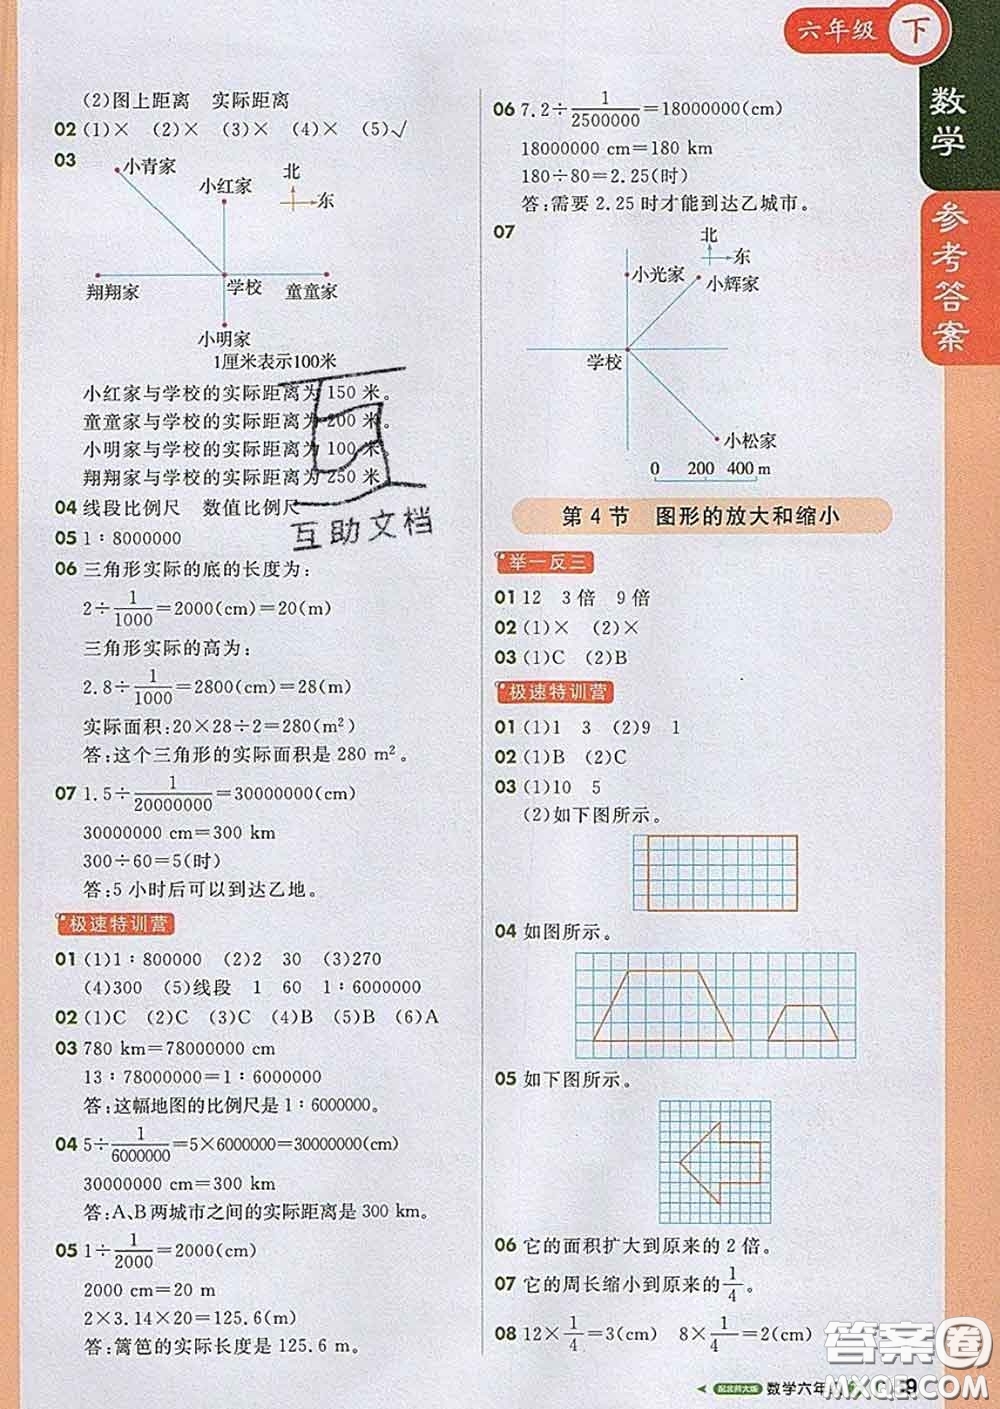 六年级 下
数学
参考答案
(2)图上距离 实际距离
02 (1)× (2)× (3)× (4)× (5)√
03
小青家
小红家
北
东
翔翔家
学校
童童家
小明家
1厘米表示100米
小红家与学校的实际距离为 150 米。
童童家与学校的实际距离为 200 米。
小明家与学校的实际距离为 100 米。
翔翔家与学校的实际距离为 250 米。
04 线段比例尺 数值比例尺
05 1∶8000000
06 三角形实际的底的长度为:
2÷1/1000=2000(cm)=20(m)
三角形实际的高为:
2.8÷1/1000=2800(cm)=28(m)
实际面积:20×28÷2=280(m²)
答:这个三角形的实际面积是 280 m²。
07 1.5÷1/20000000=30000000(cm)
30000000 cm=300 km
300÷60=5(时)
答:5 小时后可以到达乙地。
极速特训营
01 (1)1∶800000 (2)2 30 (3)270
(4)300 (5)线段 1 60 1∶6000000
02 (1)C (2)C (3)C (4)B (5)B (6)A
03 780 km=78000000 cm
13∶78000000=1∶6000000
答:这幅地图的比例尺是 1∶6000000。
04 5÷1/6000000=5×6000000=30000000(cm)
30000000 cm=300 km
答:A、B 两城市之间的实际距离是 300 km。
05 1÷1/2000=2000(cm)
2000 cm=20 m
2×3.14×20=125.6(m)
答:篱笆的实际长度是 125.6 m。
06 7.2÷1/2500000=18000000(cm)
18000000 cm=180 km
180÷80=2.25(时)
答:需要 2.25 时才能到达乙城市。
07
北
东
小光家
小辉家
学校
小松家
0 200 400 m
第 4 节 图形的放大和缩小
举一反三
01 12 3 倍 9 倍
02 (1)× (2)×
03 (1)C (2)B
极速特训营
01 (1)1 3 (2)9 1
02 (1)B (2)C
03 (1)10 5
(2)如下图所示。
04 如图所示。
05 如下图所示。
06 它的面积扩大到原来的 2 倍。
07 它的周长缩小到原来的1/4。
08 12×1/4=3(cm) 8×1/4=2(cm)
配北师大版 数学六年 9
互助文档
答案圈
MXQE.COM